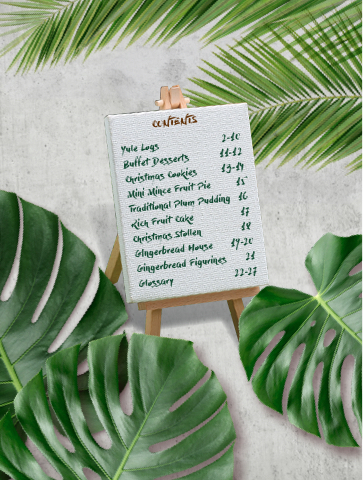 CONTENTS
Yule Logs 2-10
Buffet Desserts 11-12
Christmas Cookies 13-14
Mini Mince Fruit Pie 15
Traditional Plum Pudding 16
Rich Fruit Cake 17
Christmas Stollen 18
Gingerbread House 19-20
Gingerbread Figurines 21
Glossary 22-27